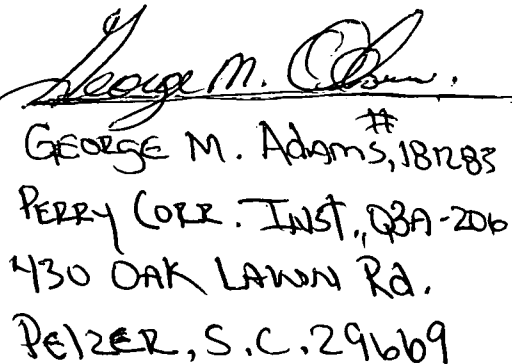 George M. Adams.
GEORGE M. Adams, #181283
PERRY CORR. INST., Q3A-206
430 OAK LAWN Rd.
PElzER, S.C. 29669